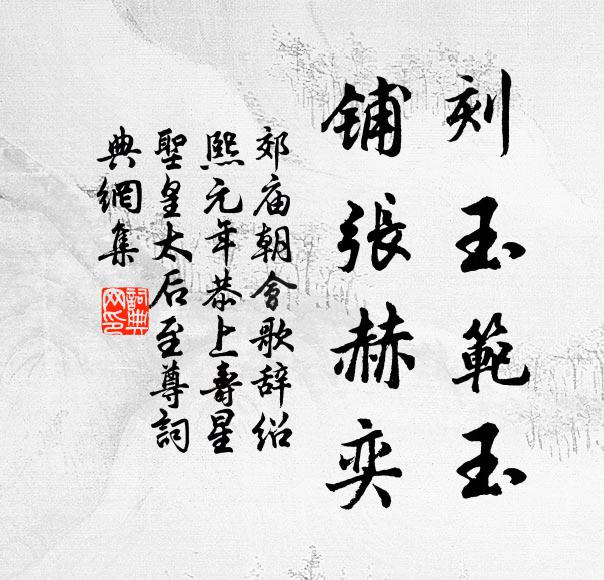 刻玉範玉
鋪張赫奕
郊庙朝會歌辞绍
熙元年恭上壽星
聖皇太后至尊詞
典網集
詞典網印